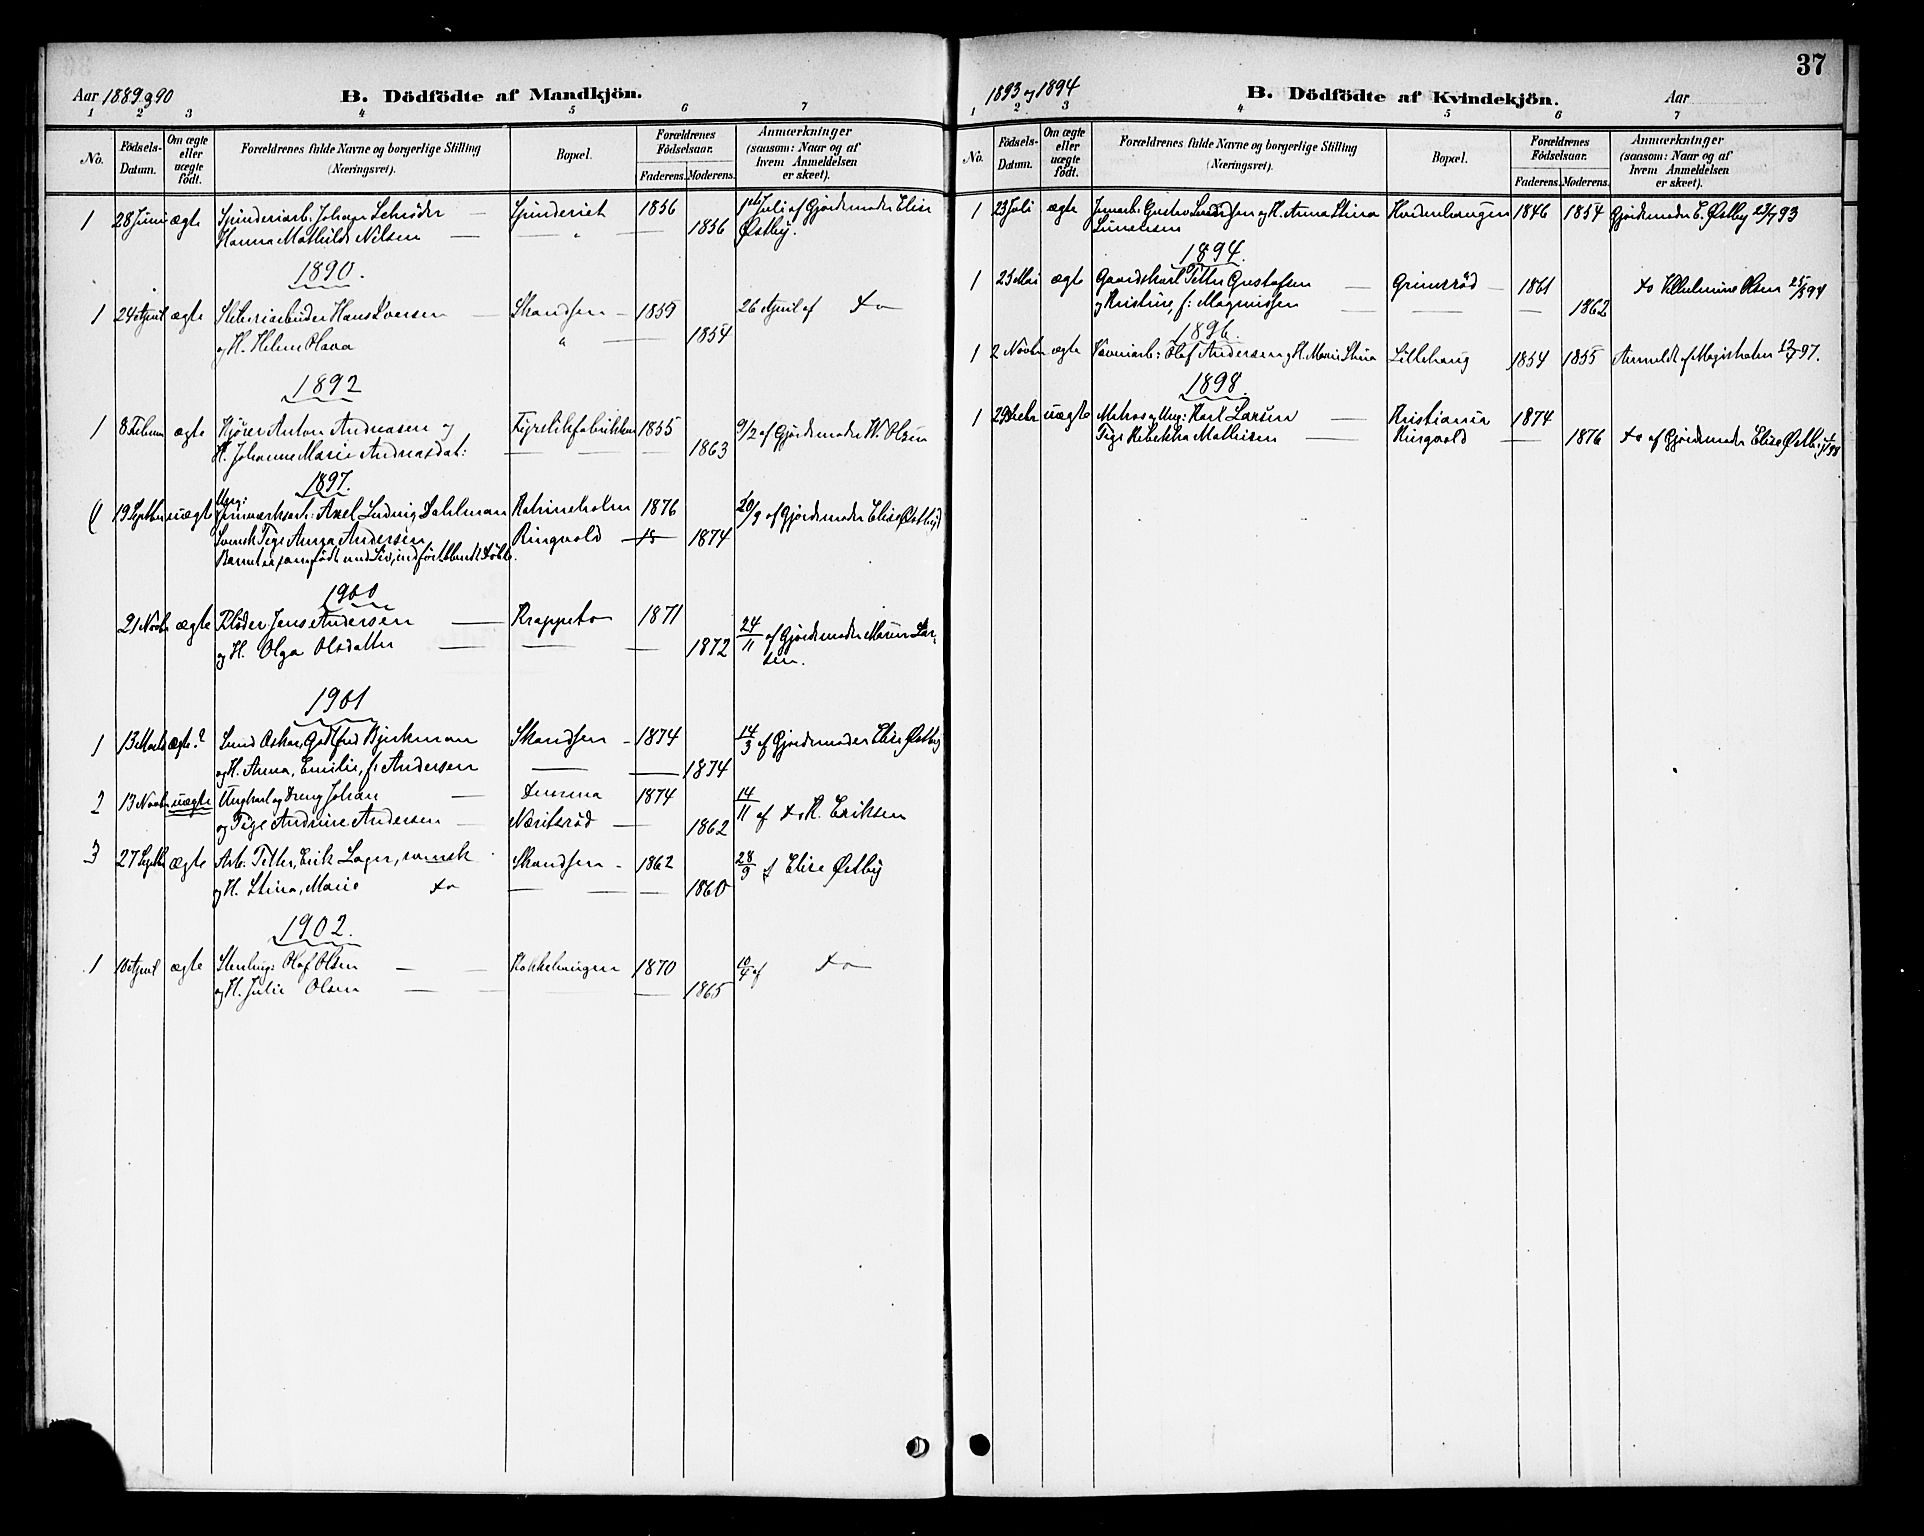 Aar 1889 og 90
B. Dödfödte af Mandkjön.
1 2 3 4 5 6 7
No.
Födsels-Datum.
Om ægte eller uægte födt.
Forældrenes fulde Navne og borgerlige Stilling (Næringsvei).
Bopæl.
Forældrenes Födselsaar.
Faderens. Moderens.
Anmærkninger (saasom: Naar og af hvem Anmeldelsen er skeet).
1 28 Juni ægte Spinderiarb. Johan Schrøder — Spinderiet 1856 1ste Juli af Gjordemoder Elise
Hanna Mathilde Nilsen — — " — 1856 Østby.
1890.
1 24 April ægte Sliberiarbeider Hans Iversen — Skandsen — 1859 26 April af do
og H. Helene Olava " — 1854
1892
1 8 Februar ægte Kjører Anton Andreasen og Fyrstikfabrikken 1855 9/2 af Gjordemoder W. Olsen
H. Johanne Marie Andreasdat: — — 1863
1897.
Ung:
1 19 Septbr uægte Jernværksarb: Axel Ludvig Dahlman Katrineholm 1876 20/9 af Gjordemoder Elise Østby
Svensk Pige Anna Andersen Ringvold — 1874
1900
21 Novbr ægte Rløder Jens Andersen — Krappeto 1871 24/11 af Gjordemoder Maren Lar-
og H. Olga Olsdatter — — — 1872 sen.
1901
1 13 Marts ægte? Oskar, Gotfred Bjerkman Skandsen — 1874 14/3 af Gjordemoder Elise Østby
og H. Anna, Emilie, f: Andersen — — 1874
2 13 Novbr uægte Ungkarl og Dreng Johan — 1874 14/11 af do K. Eriksen
og Pige Andrine Andersen — Næritsrød — 1862
3 27 Septbr ægte Arb: Petter, Erik Lager, svensk Skandsen — 1862 28/9 af Elise Østby
og H. Stina, Marie do — — — 1860
1902.
1 10 April ægte Stenhug: Olaf Olsen — — Kokkehaugen 1870 10/4 af do
og H. Julie Olsen — — — — 1865
37
1893 og 1894
B. Dödfödte af Kvindekjön.
Aar
1 2 3 4 5 6 7
No.
Födsels-Datum.
Om ægte eller uægte födt.
Forældrenes fulde Navne og borgerlige Stilling (Næringsvei).
Bopæl.
Forældrenes Födselsaar.
Faderens. Moderens.
Anmærkninger (saasom: Naar og af hvem Anmeldelsen er skeet).
1 23 Juli ægte Jernarb. Gustav og H. Anna Stina 1846 1854 Gjordemoder E. Østby 23/7 93
1894.
1 25 Mai ægte Gaardskarl Petter Gustafsen — Grimsrød — 1861 do Vilhelmine Olsen 25/5 94
og Kristine, f: Magnussen — — — 1862
1896.
1 2 Novbr ægte Olaf Andersen og H. Marie Stina Lillehaug 1854 1855 Anmeldt af Magistraten 97.
1898.
1 29 uægte Matros og Ung: Karl Larsen — Kristiania 1874
Pige Rebekka Mathisen — Ringvold — 1876 do af Gjordemoder Elise Østby 98